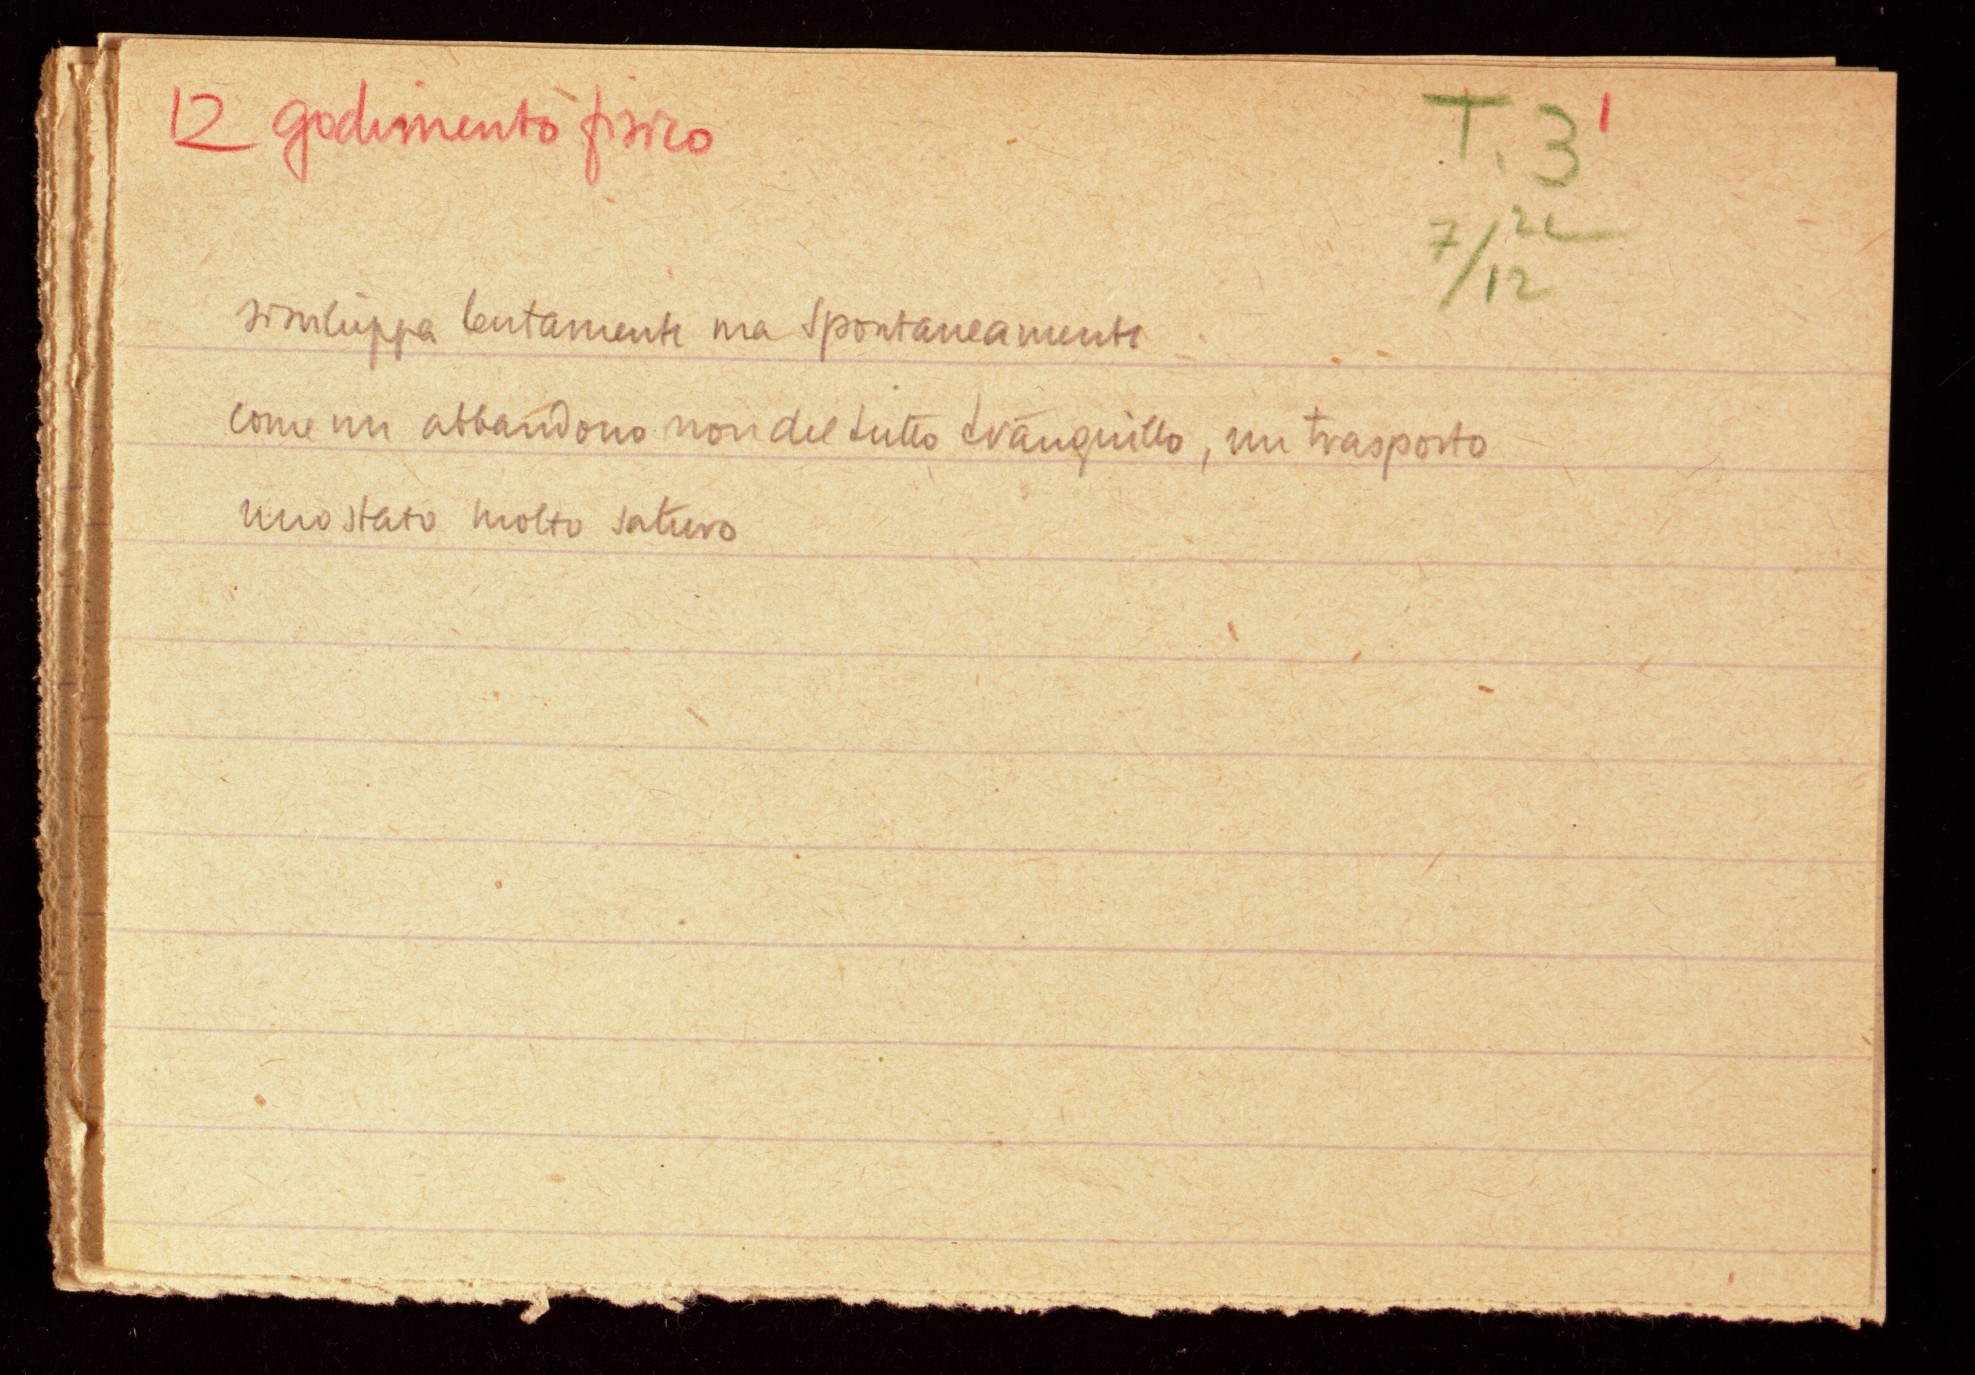 12 godimento fisico
T. 3'
7/12
si sviluppa lentamente ma spontaneamente
come un abbandono non del tutto tranquillo, un trasporto
uno stato molto saturo